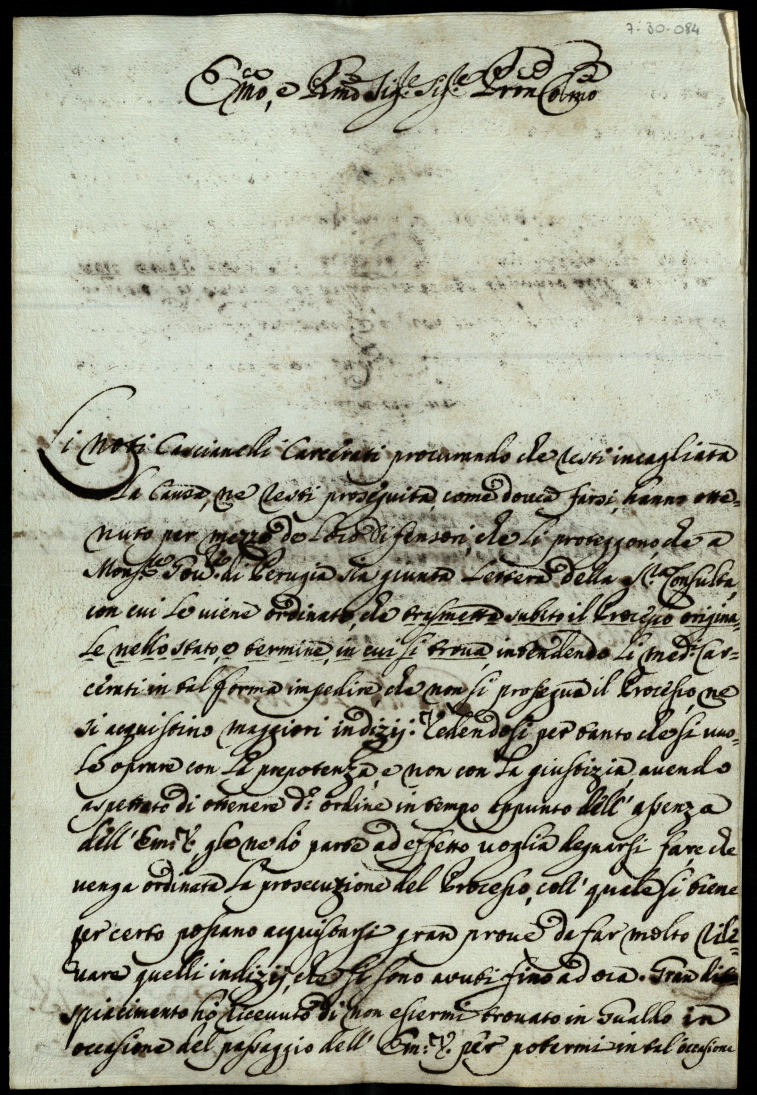 7-30-084
Emo, e Rmo Sig.re Sig.re Pron Colmo
Li noti Cascianelli Carcerati procurando che resti incagliata
la Causa, ne resti proseguita, come doucà farsi, hanno otte=
nuto per mezzo de loro difensori, che li proteggono, che a
Mons.re Gou.re di Perugia sia giunta lettera della S.ta Consulta,
con cui le viene ordinato, che trasmetta subito il Processo origina=
le nello stato, e termine, in cui si troua, intendendo li med.i Car=
cerati in tal forma impedire, che non si prosegua il Processo, ne
si acquistino maggiori indizij: Vedendosi per tanto che si uuo=
le oprare con la prepotenza, e non con la giustizia, auendo
aspettato di ottenere d.o ordine in tempo appunto dell' assenza
dell' Em.a V., gle ne dò parte ad effetto uoglia degnarsi fare che
uenga ordinata la prosecuzione del Processo, coll' quale si tiene
per certo possano acquistarsi gran proue da far molto rile=
uare quelli indizij, che si sono auuti fino ad ora. Gran di
spiacimento hò riceuuto di non essermi trouato in Gualdo in
occasione del passaggio dell' Em.a V. per potermi in tal' occasione